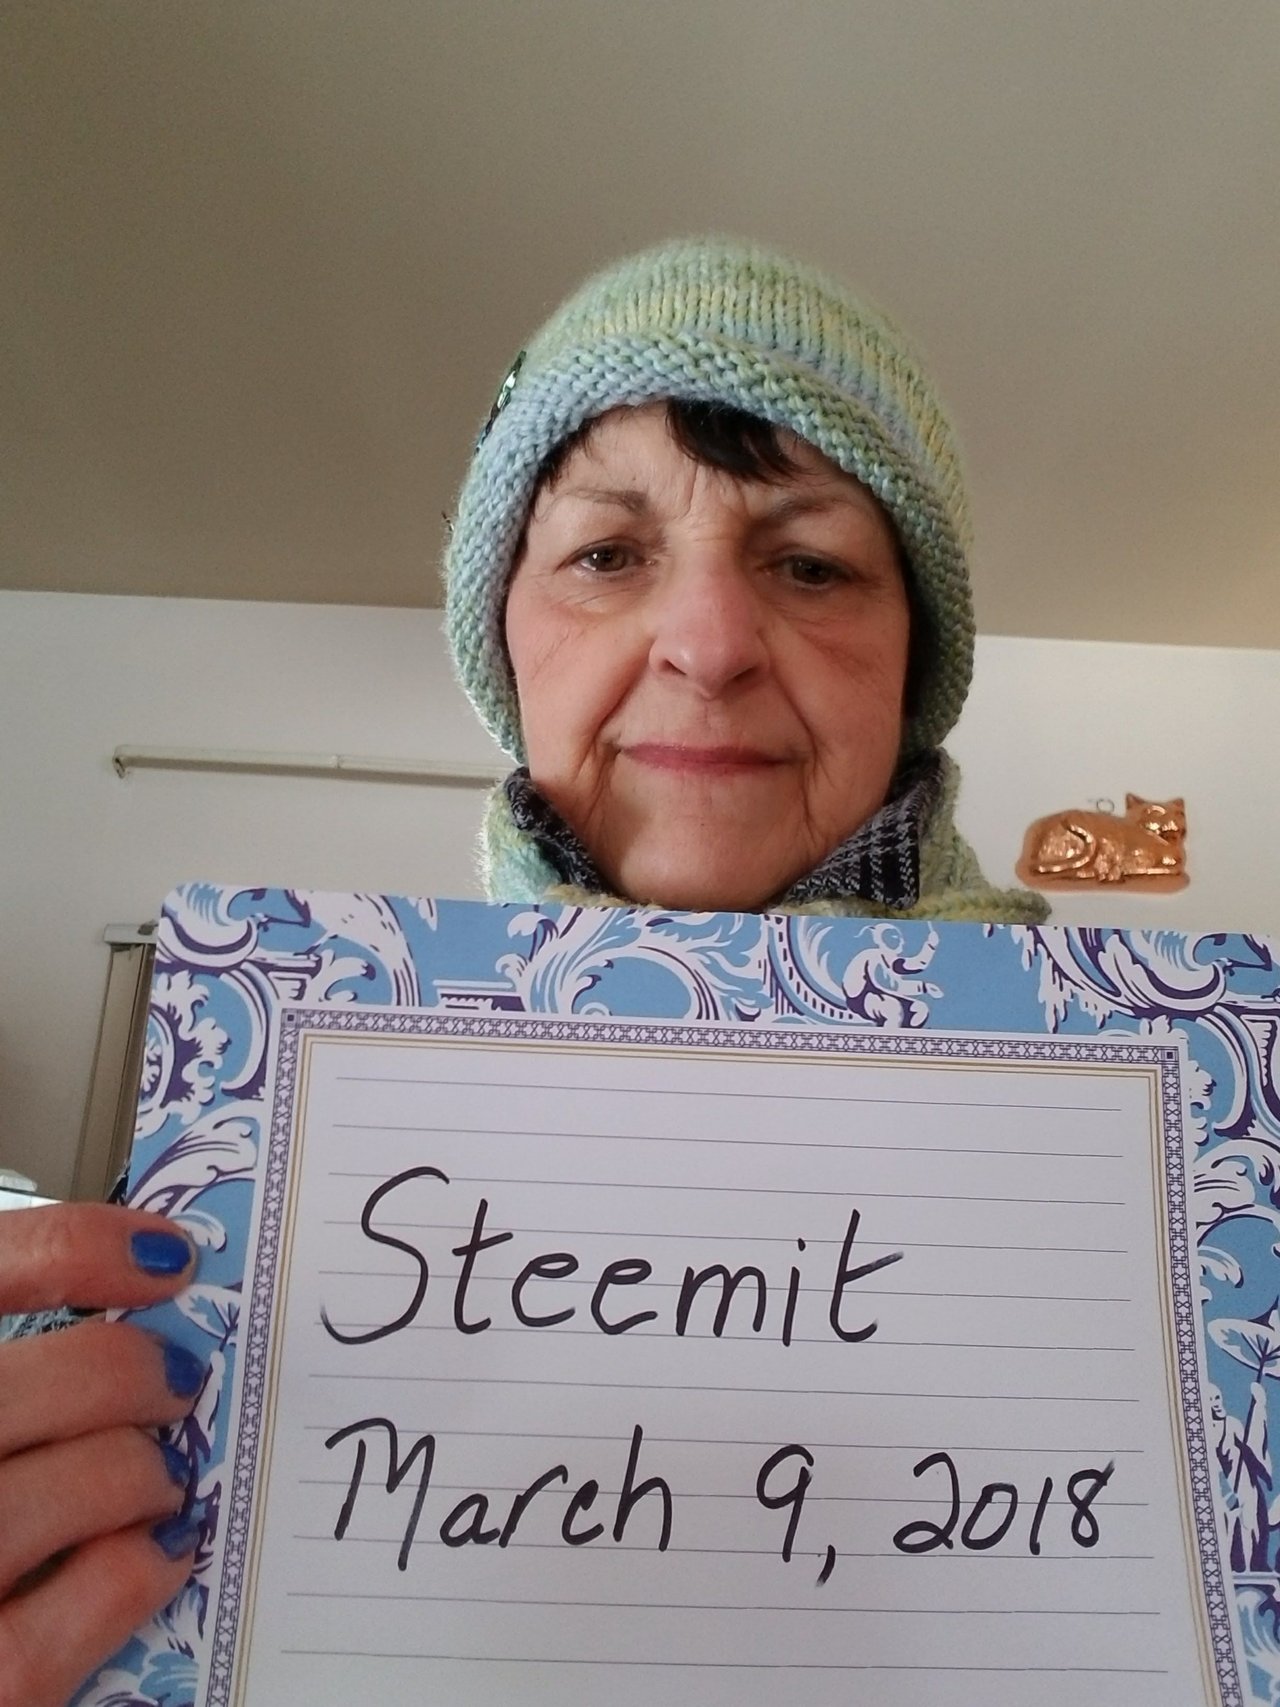 Steemit
March 9, 2018